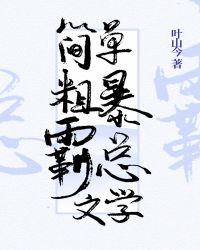 简单
粗暴
霸总
文学
叶山今 著